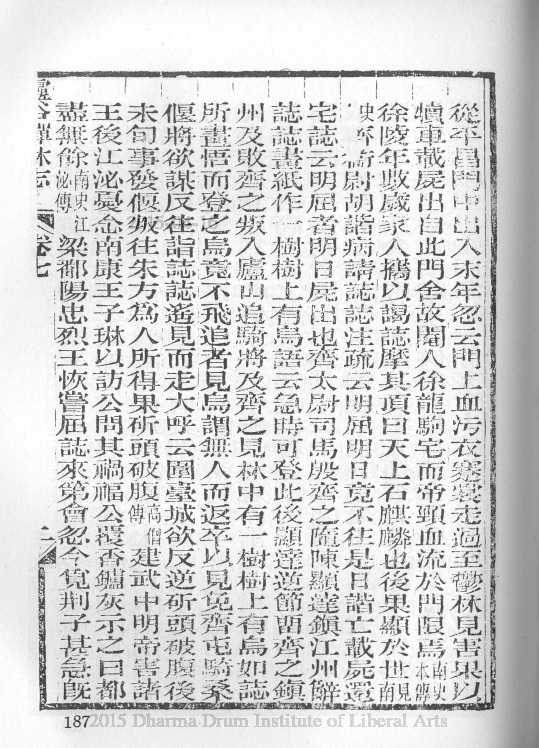 從平昌門中出入末年忽云門上血污衣褰裳走過至鬱林見害果以
犢車載屍出自此門舍故閹人徐龍駒宅而帝頸血流於門限焉南史本傳
徐陵年數歲家人攜以謁誌摩其頂曰天上石麒麟也後果顯於世見南
史 尉胡諧病請誌誌注疏云明屈明日竟不往是日諧亡載屍還
宅誌云明屈者明日屍出也齊太尉司馬殷齊之隨陳顯達鎮江州辭
誌誌畫紙作一樹樹上有烏語云急時可登此後顯達逆節留齊之鎮
州及敗齊之叛入廬山追騎將及齊之見林中有一樹樹上有烏如誌
所畫悟而登之烏竟不飛追者見烏謂無人而返卒以見免齊屯騎桑
偃將欲謀反往詣誌誌遙見而走大呼云圍臺城欲反逆斫頭破腹後
未旬事發偃叛往朱方為人所得果斫頭破腹高僧傳建武中明帝害諸
王後江泌憂念南康王子琳以訪公問其禍福公覆香鑪灰示之曰都
盡無餘南史江泌傳梁鄱陽忠烈王恢嘗屈誌來第會忽令覓荆子甚急既
靈谷禪林志
卷七
二
187
2015 Dharma Drum Institute of Liberal Arts